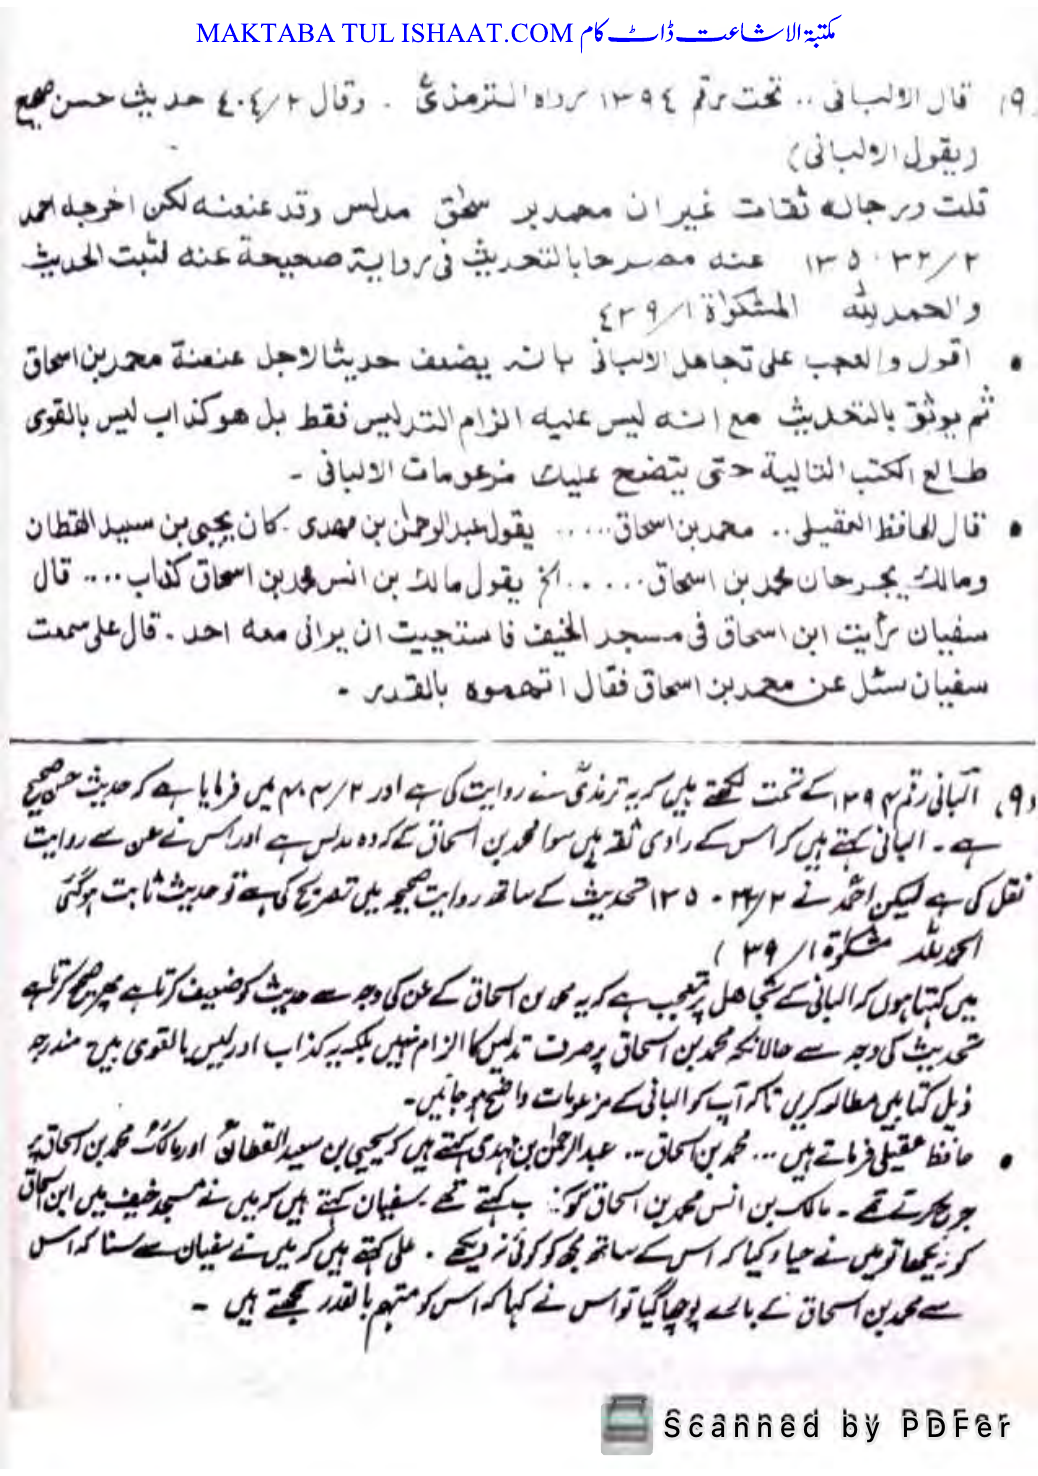 MAKTABA TUL ISHAAT.COM مکتبۃ الاشاعت ڈاٹ کام
(٩) قال الالبانی .. تحت رقم ١٣٩٤ رواه الترمذیؒ . وقال ٤٠٤/٢ حدیث حسن صحیح
(یقول الالبانی)
قلت ورجاله ثقات غیر ان محمد بن سحٰق مدلس وقد عنعنه لکن اخرجه احمد
١٣٥،٣٢/٢ عنه مصرحا بالتحدیث فی روایة صحیحة عنه فثبت الحدیث
والحمد لله المشکوٰة ٤٣٩/١
• اقول والعجب علی تجاهل الالبانی بانه یضعف حدیثا لاجل عنعنة محمد بن اسحاق
ثم یوثق بالتحدیث مع انه لیس علیه الزام التدلیس فقط بل هو کذاب لیس بالقوی
طالع الکتب التالیة حتی یتضح علیک مزعومات الالبانی ۔
• قال الحافظ العقیلی .. محمد بن اسحاق ..... یقول عبدالرحمٰن بن مهدی . کان یحیی بن سعید القطان
ومالک یجرحان محمد بن اسحاق ...... الخ یقول مالک بن انس محمد بن اسحاق کذاب .... قال
سفیان رأیت ابن اسحاق فی مسجد الخیف فاستحییت ان یرانی معه احد . قال علی سمعت
سفیان سئل عن محمد بن اسحاق فقال اتهموه بالقدر ۔
(٩) البانی رقم ١٣٩٤ کے تحت لکھتے ہیں کہ یہ ترمذیؒ نے روایت کی ہے اور ٤٠٤/٢ میں فرمایا ہے کہ حدیث حسن صحیح
ہے ۔ البانی کہتے ہیں کہ اس کے راوی ثقہ ہیں سوا محمد بن اسحاق کے کہ وہ مدلس ہے اور اس نے عن سے روایت
نقل کی ہے لیکن احمد نے ١٣٥،٣٢/٢ تحدیث کے ساتھ روایت صحیحہ میں تصریح کی ہے تو حدیث ثابت ہوگئی
الحمدللہ مشکوٰة ٣٩/١)
میں کہتا ہوں کہ البانی کے تجاھل پر تعجب ہے کہ یہ محمد بن اسحاق کے عن کی وجہ سے حدیث کو ضعیف کرتا ہے پھر صحیح کرتا ہے
تحدیث کی وجہ سے حالانکہ محمد بن اسحاق پر صرف تدلیس کا الزام نہیں بلکہ یہ کذاب اور لیس بالقوی ہیں ۔ مندرجہ
ذیل کتابیں مطالعہ کریں تاکہ آپ کو البانی کے مزعومات واضح ہو جائیں ۔
• حافظ عقیلی فرماتے ہیں ... محمد بن اسحاق .. عبدالرحمٰن بن مہدی کہتے ہیں کہ یحیی بن سعید القطانؒ اور مالکؒ محمد بن اسحاق پر
جرح کرتے تھے ۔ مالک بن انس محمد بن اسحاق کو کذاب کہتے تھے ۔ سفیان کہتے ہیں کہ میں نے مسجد خیف میں ابن اسحاق
کو دیکھا تو میں نے حیاء کیا کہ اس کے ساتھ مجھ کو کوئی نہ دیکھے . علی کہتے ہیں کہ میں نے سفیان سے سنا کہ اس
سے محمد بن اسحاق کے بارے پوچھا گیا تو اس نے کہا کہ اس کو متہم بالقدر سمجھتے ہیں ۔
Scanned by PDFer